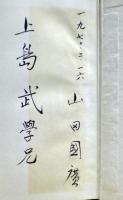 一九七〇・三・一六
山田國廣
上島武學兄